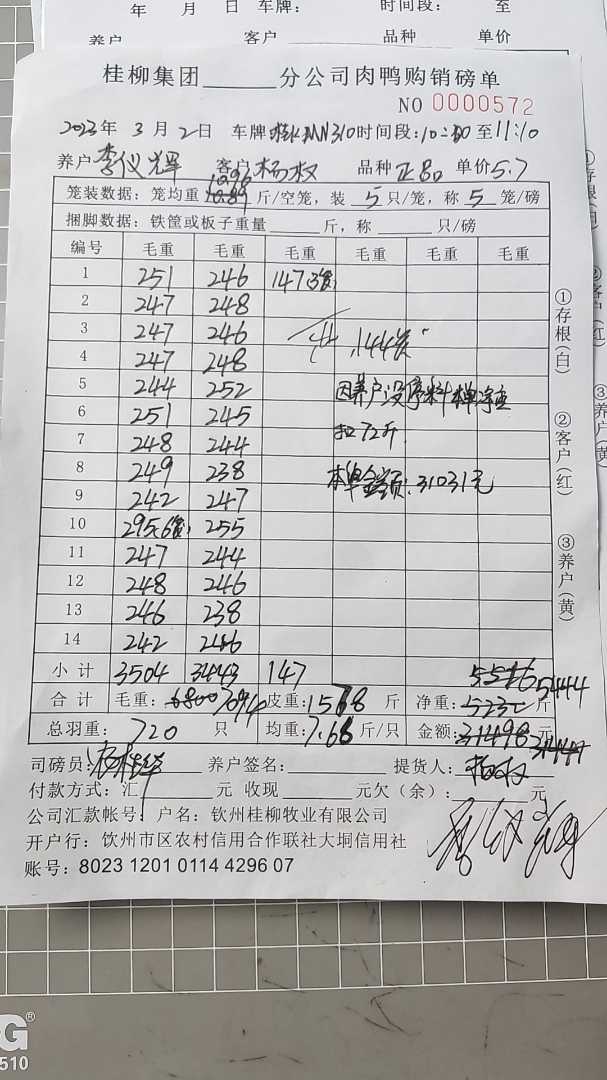 年 月 日 车牌: 时间段: 至
养户 客户 品种 单价
桂柳集团 分公司肉鸭购销磅单
NO 0000572
2023年 3月 2日 车牌 N310 时间段: 至11:10
养户 李仪辉 客户 杨权 品种 正品 单价5.7
笼装数据: 笼均重 斤/空笼, 装 5 只/笼, 称 5 笼/磅
捆脚数据: 铁筐或板子重量 斤, 称 只/磅
编号 毛重 毛重 毛重 毛重 毛重 毛重
1 251 246 147
2 247 248
3 247 246
4 247 248 144
5 244 252 因养户没
6 251 245 扣72斤
7 248 244
8 249 238 本单金额: 31031元
9 242 247
10 295 255
11 247 244
12 248 246
13 246 238
14 242 246
小计 3504 3443 147 5444
合计 毛重: 7094 皮重: 1568 斤 净重: 5232 斤
总羽重: 720 只 均重: 7.68 斤/只 金额: 31498 元
司磅员: 养户签名: 提货人: 杨权
付款方式: 汇 元 收现 元欠(余): 元
公司汇款帐号: 户名: 钦州桂柳牧业有限公司
开户行: 饮州市区农村信用合作联社大垌信用社
账号: 8023 1201 0114 4296 07
①存根(白)
②客户(红)
③养户(黄)
G®
510